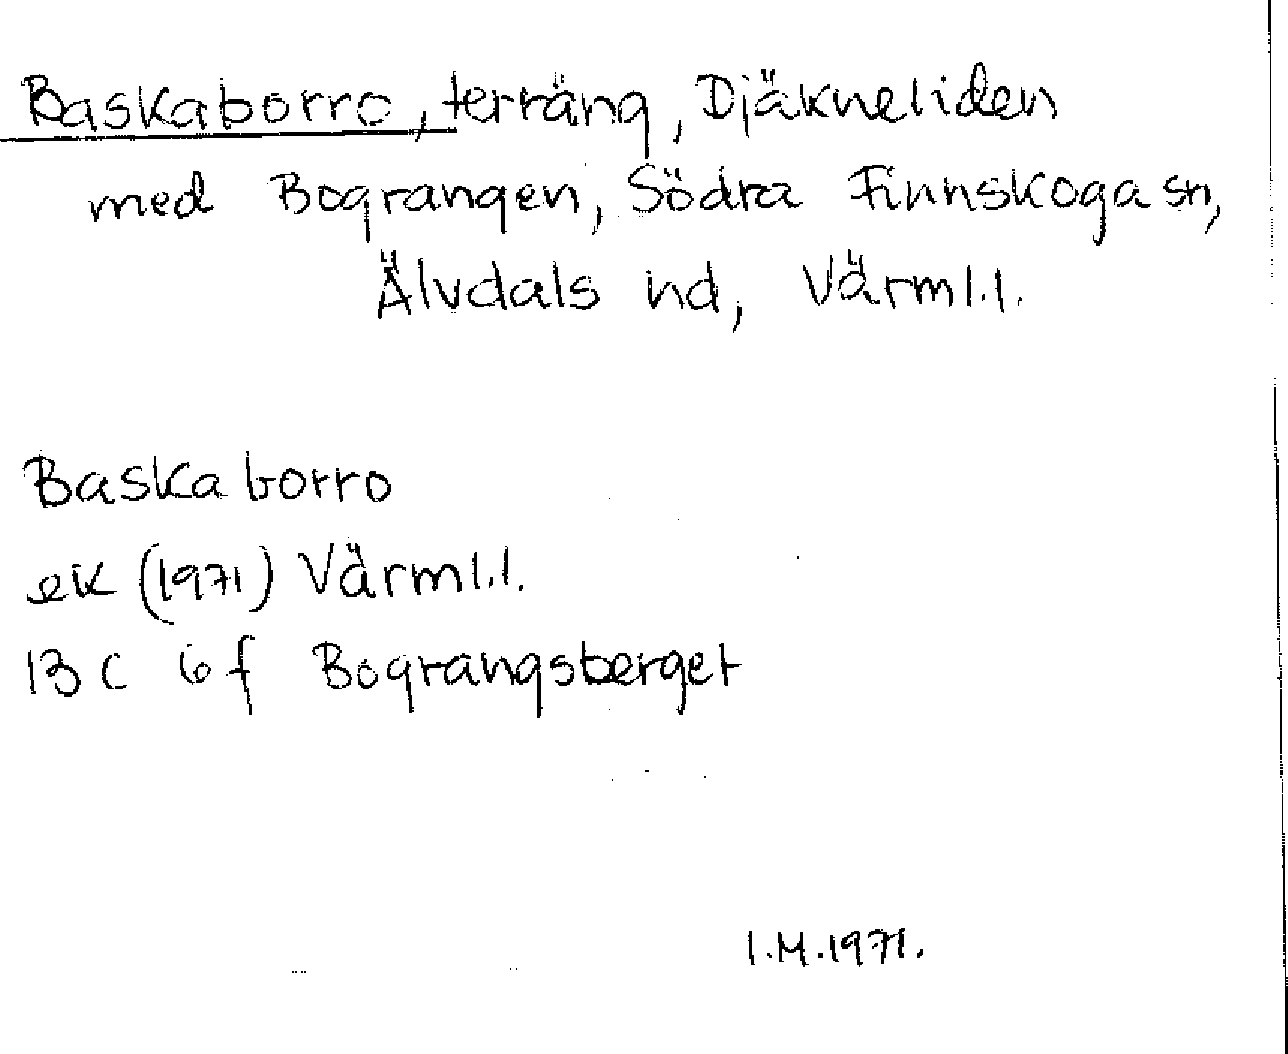 Baskaborro, terräng, Djäkneliden
med Bograngen, Södra Finnskoga sn,
Älvdals hd, Värml.l.
Baskaborro
ek (1971) Värml.l.
13 C 6 f Bograngsberget
I.M.1971.